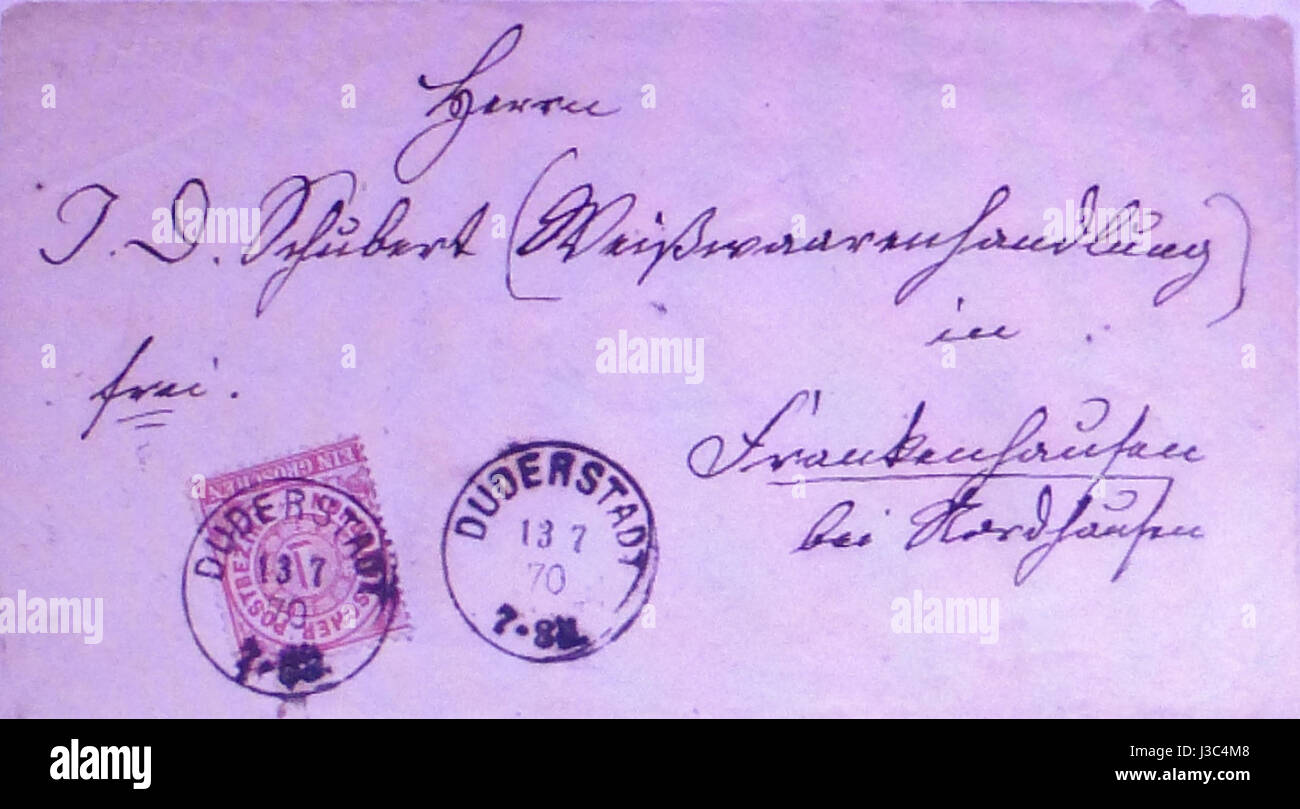 Herrn
J. D. Schubert (Weißwaarenhandlung)
in
frei.
Frankenhausen
bei Nordhausen
EIN GROSCHEN
NORDDEUTSCHER POSTBEZIRK
DUDERSTADT
13 7
70
7-8N.
DUDERSTADT
13 7
70
7-8N.
a a a a
a alamy a
alamy alamy
alamy
Image ID: J3C4M8
www.alamy.com